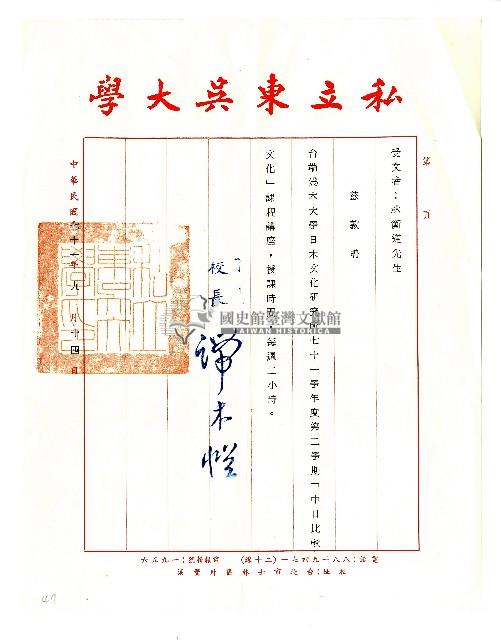 私立東吳大學
第 頁
受文者：林衡道先生
茲敦聘
台端為本大學日本文化研究所七十一學年度第二學期「中日比較
文化」課程講座，授課時間每週二小時。
校長 端木愷
中華民國七十一年九月十四日
電話：八八一九四七一—（二十線） 郵政劃撥：一九五六
校址：台北市士林區外雙溪
國史館臺灣文獻館
TAIWAN HISTORICA
47